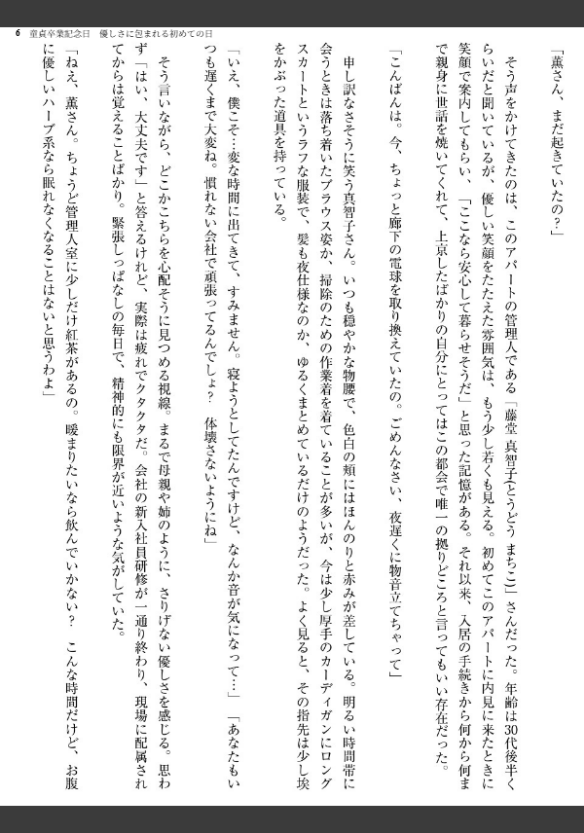 6 童貞卒業記念日　優しさに包まれる初めての日
「薫さん、まだ起きていたの？」
そう声をかけてきたのは、このアパートの管理人である「藤堂 真智子(とうどう まちこ)」さんだった。年齢は30代後半く
らいだと聞いているが、優しい笑顔をたたえた雰囲気は、もう少し若くも見える。初めてこのアパートに内見に来たときに
笑顔で案内してもらい、「ここなら安心して暮らせそうだ」と思った記憶がある。それ以来、入居の手続きから何から何ま
で親身に世話を焼いてくれて、上京したばかりの自分にとってはこの都会で唯一の拠りどころと言ってもいい存在だった。
「こんばんは。今、ちょっと廊下の電球を取り換えていたの。ごめんなさい、夜遅くに物音立てちゃって」
申し訳なさそうに笑う真智子さん。いつも穏やかな物腰で、色白の頬にはほんのりと赤みが差している。明るい時間帯に
会うときは落ち着いたブラウス姿か、掃除のための作業着を着ていることが多いが、今は少し厚手のカーディガンにロング
スカートというラフな服装で、髪も夜仕様なのか、ゆるくまとめているだけのようだった。よく見ると、その指先は少し埃
をかぶった道具を持っている。
「いえ、僕こそ…変な時間に出てきて、すみません。寝ようとしてたんですけど、なんか音が気になって…」　「あなたもい
つも遅くまで大変ね。慣れない会社で頑張ってるんでしょ？　体壊さないようにね」
そう言いながら、どこかこちらを心配そうに見つめる視線。まるで母親や姉のように、さりげない優しさを感じる。思わ
ず「はい、大丈夫です」と答えるけれど、実際は疲れでクタクタだ。会社の新入社員研修が一通り終わり、現場に配属され
てからは覚えることばかり。緊張しっぱなしの毎日で、精神的にも限界が近いような気がしていた。
「ねえ、薫さん。ちょうど管理人室に少しだけ紅茶があるの。暖まりたいなら飲んでいかない？　こんな時間だけど、お腹
に優しいハーブ系なら眠れなくなることはないと思うわよ」